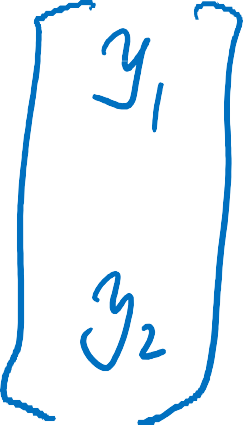 y₁
y₂